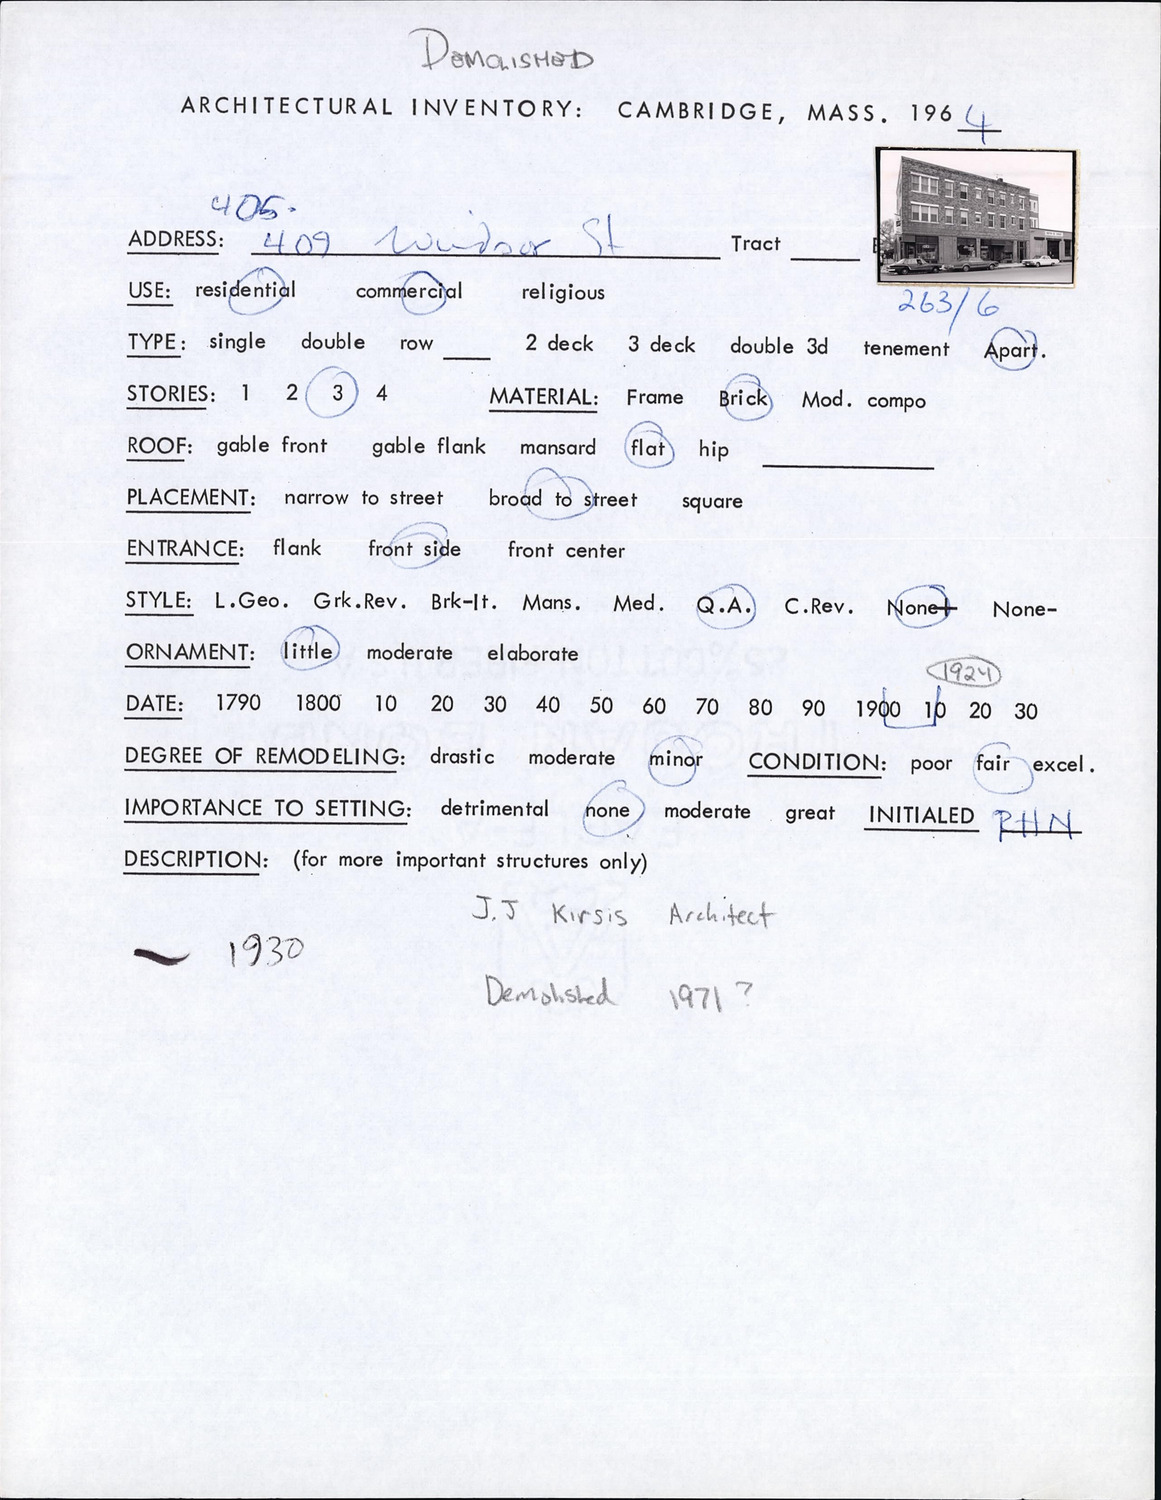 DEMOLISHED
ARCHITECTURAL INVENTORY: CAMBRIDGE, MASS. 1964
405-
ADDRESS: 409 Windsor St Tract
263/6
USE: residential commercial religious
TYPE: single double row 2 deck 3 deck double 3d tenement Apart.
STORIES: 1 2 3 4 MATERIAL: Frame Brick Mod. compo
ROOF: gable front gable flank mansard flat hip
PLACEMENT: narrow to street broad to street square
ENTRANCE: flank front side front center
STYLE: L.Geo. Grk.Rev. Brk-It. Mans. Med. Q.A. C.Rev. None+ None-
ORNAMENT: little moderate elaborate
1924
DATE: 1790 1800 10 20 30 40 50 60 70 80 90 1900 10 20 30
DEGREE OF REMODELING: drastic moderate minor CONDITION: poor fair excel.
IMPORTANCE TO SETTING: detrimental none moderate great INITIALED RHN
DESCRIPTION: (for more important structures only)
J.J Kirsis Architect
~ 1930
Demolished 1971?